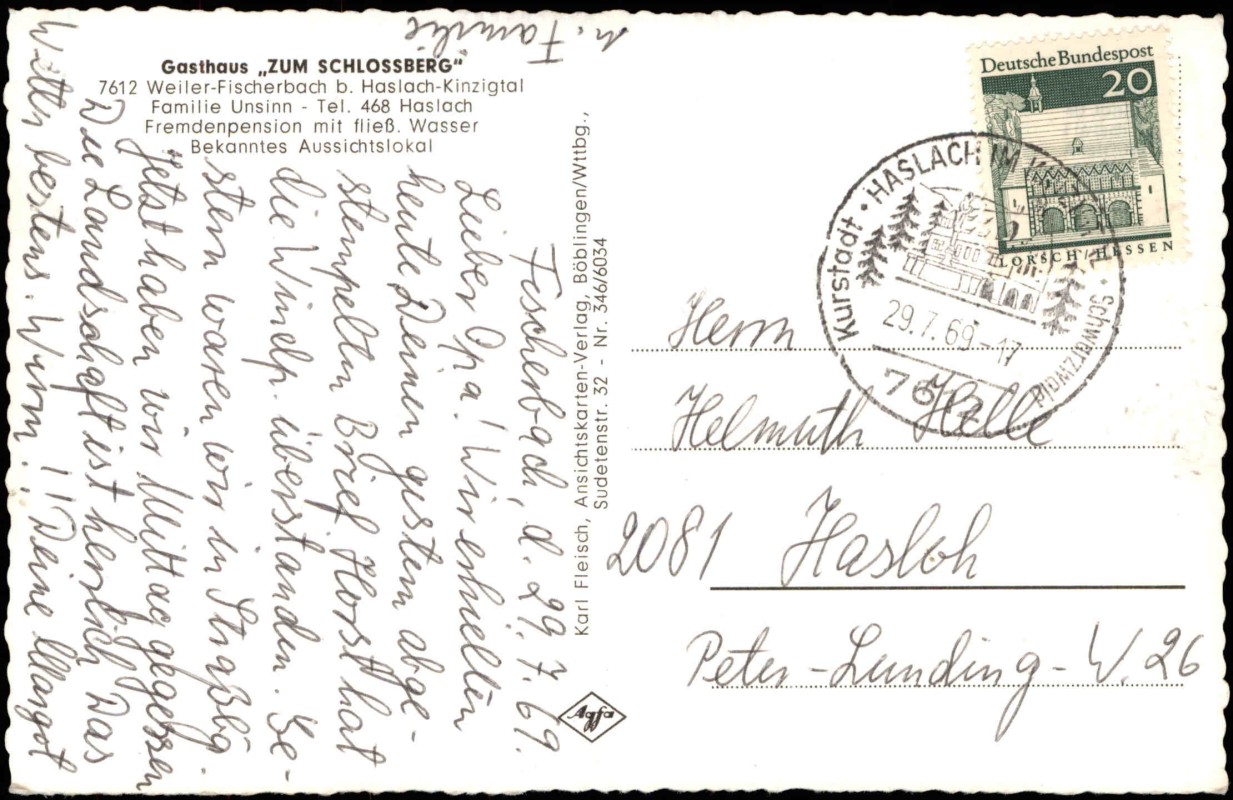 Gasthaus „ZUM SCHLOSSBERG"
7612 Weiler-Fischerbach b. Haslach-Kinzigtal
Familie Unsinn - Tel. 468 Haslach
Fremdenpension mit fließ. Wasser
Bekanntes Aussichtslokal
Fischerbach, d. 29.7.69.
Lieber Opa! Wir erhielten
heute Deinen gestern abge-
stempelten Brief. Horst hat
die Windp. überstanden. Ge-
stern waren wir in Straßbg.
Jetzt haben wir Mittag gegessen
Die Landschaft ist herrlich Das
Wetter bestens. Warm!! Deine Margot
u. Familie
Karl Fleisch, Ansichtskarten-Verlag, Böblingen/Wttbg.,
Sudetenstr. 32 - Nr. 346/6034
Agfa
Deutsche Bundespost
20
LORSCH/HESSEN
Kurstadt · HASLACH IM · Schwarzwald
29.7.69-17
7612
Herrn
Helmuth Helle
2081 Hasloh
Peter-Lunding-W. 26